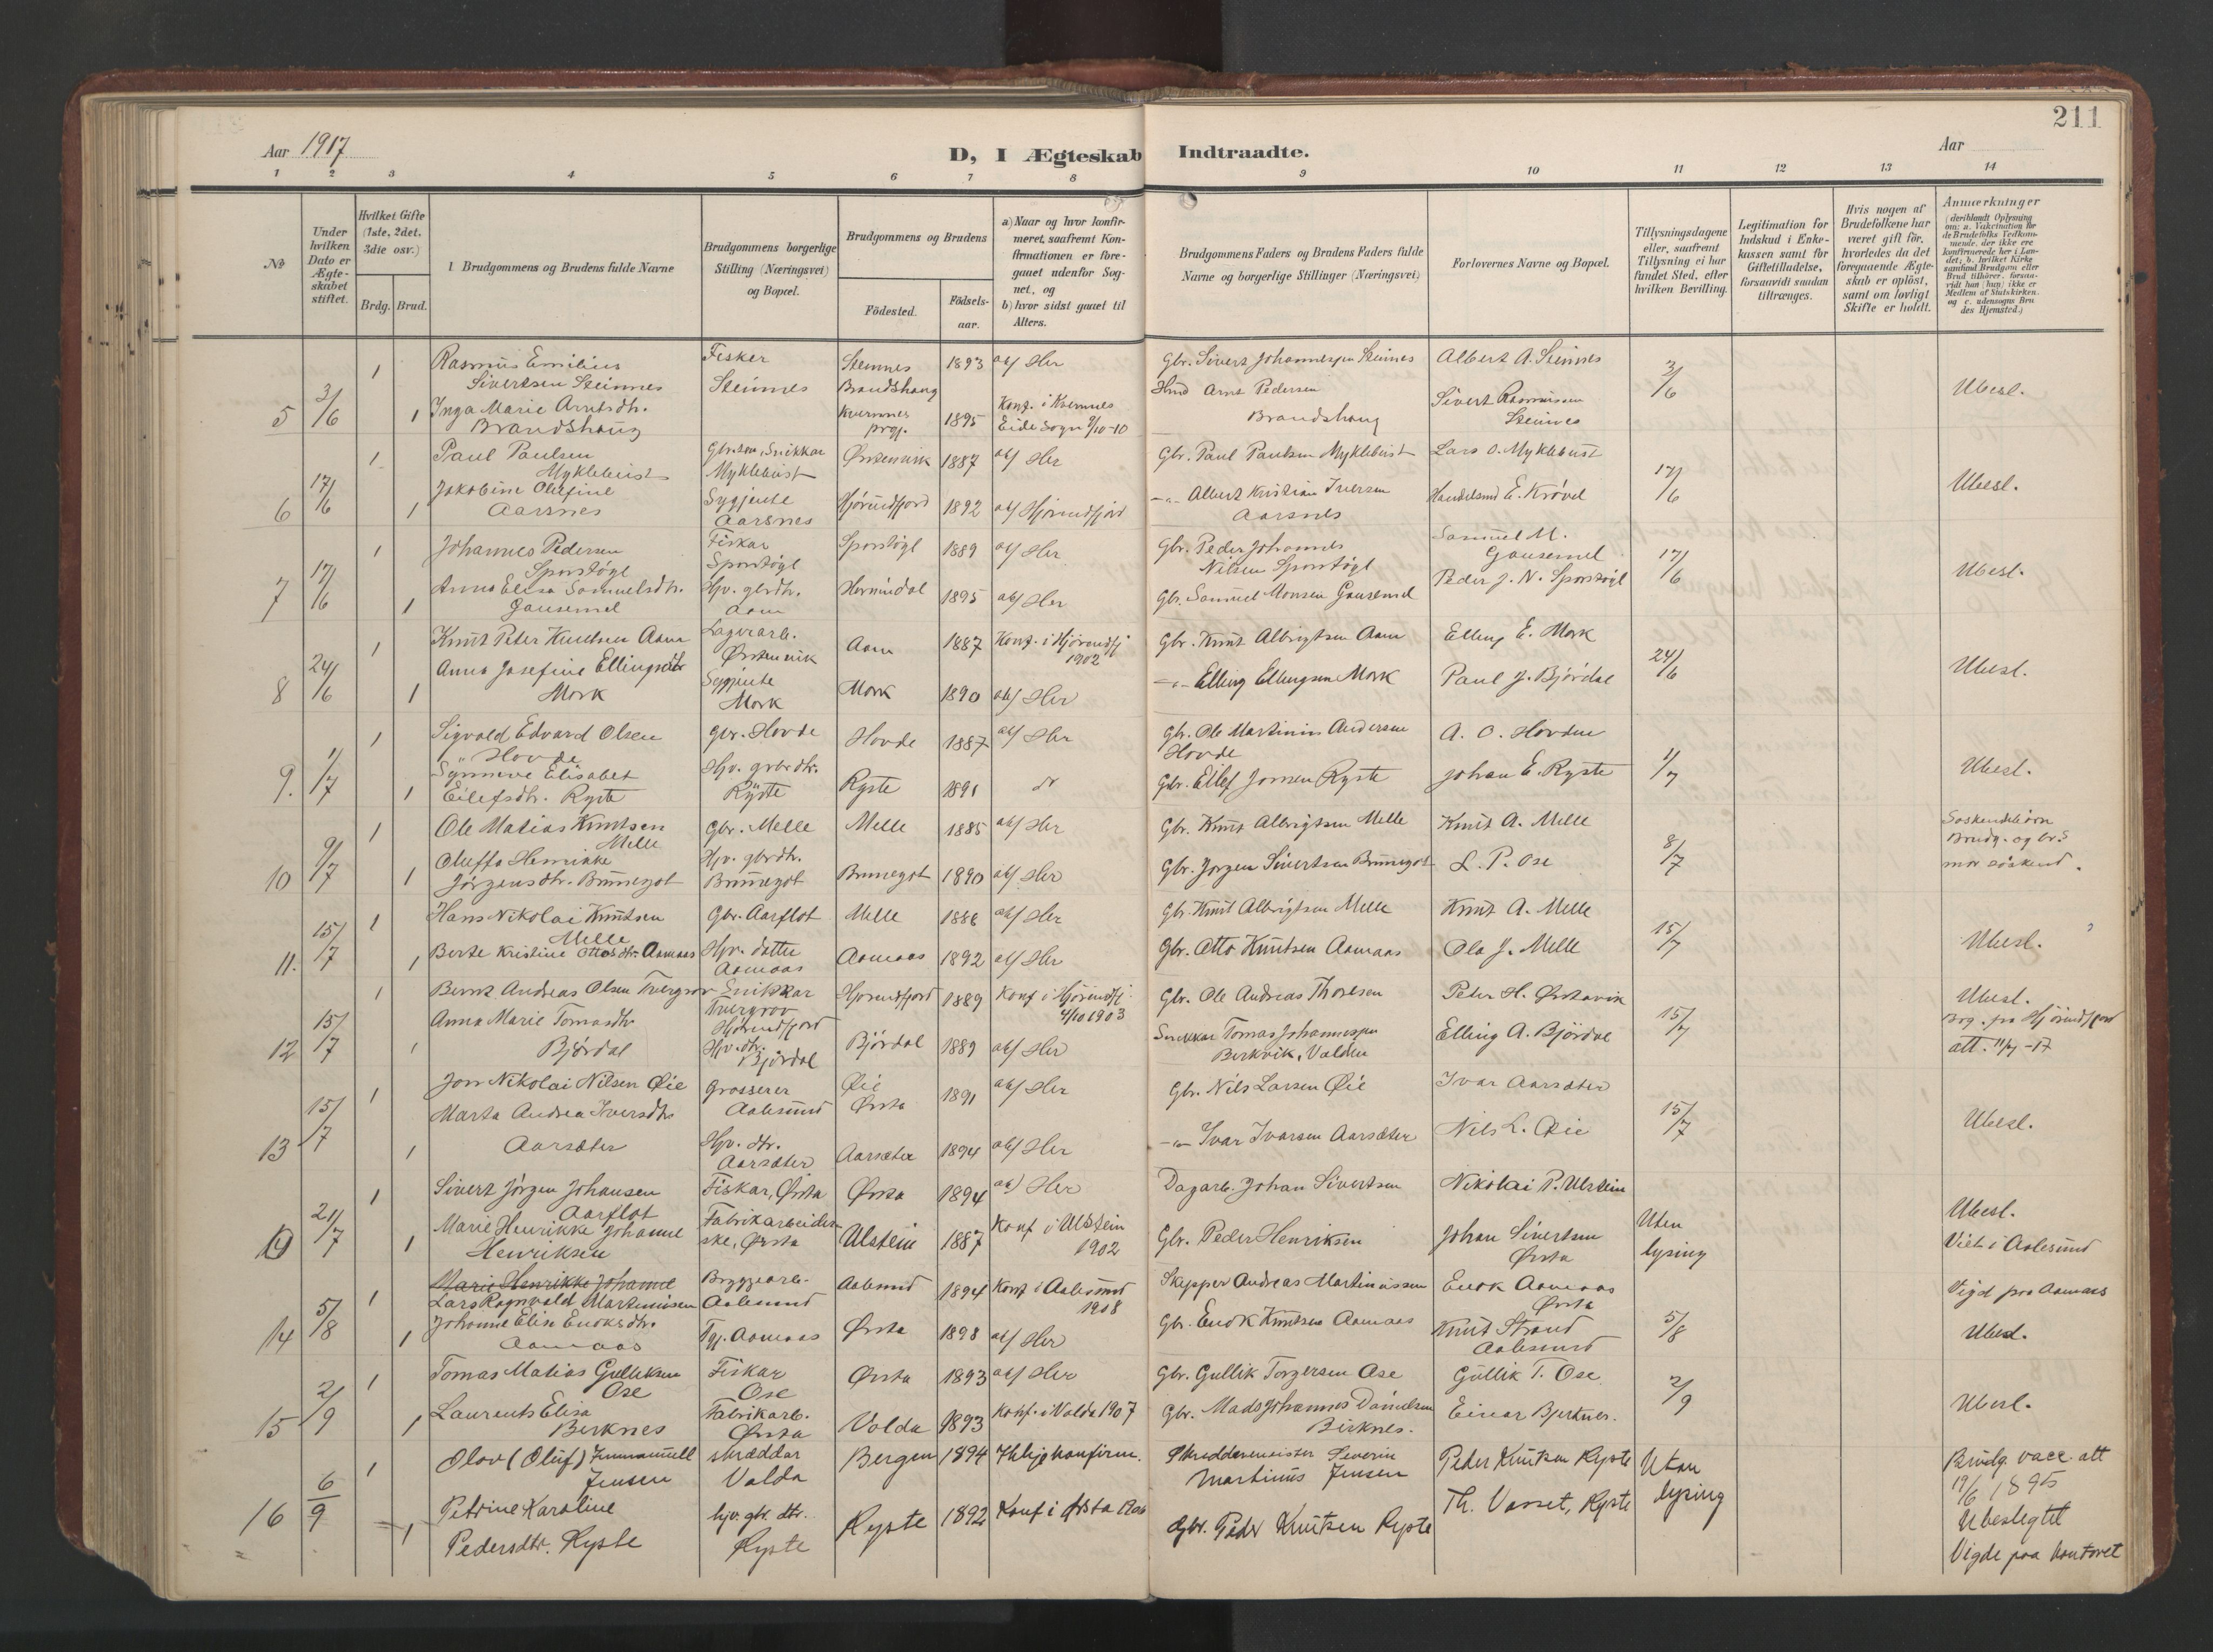 211
Aar 1917
D, I Ægteskab Indtraadte.
Aar
1 2 3 4 5 6 7 8 9 10 11 12 13 14
№
Under hvilken Dato er Ægte-skabet stiftet.
Hvilket Gifte (1ste, 2det. 3die osv.)
Brdg. Brud.
Brudgommens og Brudens fulde Navne
Brudgommens borgerlige Stilling (Næringsvei) og Bopæl.
Brudgommens og Brudens
Födested.
Födsels-aar.
a) Naar og hvor konfir-meret, saafremt Kon-firmationen er fore-gaaet udenfor Sog-net, og
b) hvor sidst gaaet til Alters.
Brudgommens Faders og Brudens Faders fulde Navne og borgerlige Stillinger (Næringsvei)
Forlovernes Navne og Bopæl.
Tillysningsdagene eller, saafremt Tillysning ei har fundet Sted, efter hvilken Bevilling.
Legitimation for Indskud i Enke-kassen samt for Giftetilladelse, forsaavidt saadan tiltrænges.
Hvis nogen af Brudefolkene har været gift för, hvorledes da det foregaaende Ægte-skab er oplöst, samt om lovligt Skifte er holdt.
Anmærkninger
(deriblandt Oplysning om: a. Vakcination for de Brudefolks Vedkom-mende, der ikke ere konfirmerede her i Lan-det; b. hvilket Kirke samfund Brudgom eller Brud tilhörer, forsaa-vidt han (hun) ikke er Medlem af Statskirken, og c. udensogns Bru des Hjemsted.)
5 3/6 1 Rasmus Emilius Sivertsen Steinnes Fisker Steinnes Steinnes 1893 a b/ Her Gbr. Sivert Johannesen Steinnes Albert A. Steinnes 3/6 Ubesl.
1 Inga Marie Arntsdtr. Brandshaug Brandshaug Kvernnes prgj. 1895 Konf. i Kvernnes Eide sogn 9/10-10 Hmd Arnt Pedersen Brandshaug Sivert Rasmussen Steinnes
6 17/6 1 Paul Paulsen Myklebust Gbr.søn, Snikkar Myklebust Ørstenvik 1887 ab/ Her Gbr. Paul Paulsen Myklebust Lars O. Myklebust 17/6 Ubesl.
1 Jakobine Olufine Aarsnes Sygjente Aarsnes Hjørundfjord 1892 ab/ Hjørundfjord -"- Albert Kristian Iversen Aarsnes Handelsmd E. Krøvel
7 17/6 1 Johannes Pedersen Sporstøyl Fiskar Sporstøyl Sporstøyl 1889 ab/ Her Gbr. Peder Johannes Nilsen Sporstøyl Samuel M. Gausemel 17/6 Ubesl.
1 Anna Elisa Samuelsdtr. Gausemel Hjv. gbrdtr. Aam 1895 ab/ Her Gbr. Samuel Monsen Gausemel Peder J. N. Sporstøyl
8 24/6 1 Knut Peter Knutsen Aam Lagerarb. Ørstenvik Aam 1887 Konf. i Hjørundfj 1902 Gbr. Knut Albrigtsen Aam Elling E. Mork 24/6 Ubesl.
1 Anna Josefine Ellingsdtr Mork Sygjente Mork Mork 1890 ab/ Her -"- Elling Ellingsen Mork Paul J. Bjørdal
9. 1/7 1 Sigvald Edvard Olsen Hovde Gbr. Hovde Hovde 1887 ab/ Her Gbr. Ole Martinus Andersen Hovde A. O. Hovden 1/7 Ubesl.
1 Synnøve Elisabet Eilefsdtr. Ryste Hjv. gbrdtr. Ryste Ryste 1891 Gbr. Eilef Jonsen Ryste Johan E. Ryste
10 9/7 1 Ole Matias Knutsen Melle Gbr. Melle Melle 1885 ab/ Her Gbr. Knut Albrigtsen Melle Knut A. Melle 8/7 Søskendebørn Brudg. og br.s mor søskend.
1 Oluffa Henrikke Jørgensdtr. Brunegot Hjv. gbrdtr. Brunegot Brunegot 1890 ab/ Her Gbr. Jørgen Sivertsen Brunegot L. P. Ose
11. 15/7 1 Hans Nikolai Knutsen Melle Gbr. Aarflot Melle 1886 ab/ Her Gbr. Knut Albrigtsen Melle Knut A. Melle 15/7 Ubesl.
1 Berte Kristine Ottosdtr. Aamaas Hjv. datter Aamaas Aamaas 1892 ab/ Her Gbr. Otto Knutsen Aamaas Ola J. Melle
12 15/7 1 Bernt Andreas Olsen Tvergrov Snikkar Tvergrov Hjørundfjord Hjørundfjord 1889 Konf i Hjørundfj. 4/10 1903 Gbr. Ole Andreas Thoresen Peter H. Ørstavik 15/7 Ubesl. Brg. fra Hjørundfjord att. 11/7-17
1 Anna Marie Tomasdtr Bjørdal Hjv. dtr. Bjørdal Bjørdal 1889 ab/ Her Snekkar Tomas Johannesen Berkvik, Valden Elling A. Bjørdal
13 15/7 1 Jon Nikolai Nilsen Øie Grosserer Aalesund Øie Ørsta 1891 ab/ Her Gbr. Nils Larsen Øie Ivar Aarsæter 15/7 Ubesl.
1 Marta Andrea Iversdtr Aarsæter Hjv. dtr. Aarsæter Aarsæter 1894 ab/ Her -"- Ivar Ivarsen Aarsæter Nils L. Øie
21/7 1 Sivert Jørgen Johansen Aarflot Fiskar, Ørsta Ørsta 1894 ab/ Her Dagarb. Johan Sivertsen Nikolai P. Ulstein Uten lysing Ubesl. Viet i Aalesund
1 Marie Henrikke Johanne Henriksen Fabrikarbeiderske, Ørsta Ulstein 1887 Konf i Ulstein 1902 Gbr. Peder Henriksen Johan Sivertsen Ørsta
14 5/8 1 Marie Henrikke Johanne Lars Ragnvald Martinusen Bryggearb. Aalesund Aalesund 1894 Konf i Aalesund 1908 Skipper Andreas Martinussen Enok Aamaas Ørsta 5/8 Vigd paa Aamaas Ubesl.
1 Johanne Elise Enoksdtr. Aamaas Tj. Aamaas Ørsta 1898 ab/ Her Gbr. Enok Knutsen Aamaas Knut Strand Aalesund
15 2/9 1 Tomas Matias Gulliksen Ose Fiskar Ose Ørsta 1893 ab/ Her Gbr. Gullik Torgersen Ose Gullik T. Ose 2/9 Ubesl.
1 Laurents Elisa Berknes Fabrikarb. Ørsta Volda 1893 Konf. i Volda 1907 Gbr. Mads Johannes Danielsen Birknes. Einar Bjerknes.
16 6/9 1 Olav (Oluf) Immanuell Jensen skræddar Volda Bergen 1894 Ikkje konfirm. Skreddermeister Severin Martinus Jensen Peder Knutsen Ryste Utan lysing Brudg. vacc. att 19/6 1895 Ubeslegtet Vigde paa kontoret
1 Petrine Karoline Pedersdtr. Ryste hjv. gbr. dtr. Ryste Ryste 1892 Konf i Ørsta 1906 Gbr. Peder Knutsen Ryste Th. Vasset, Ryste